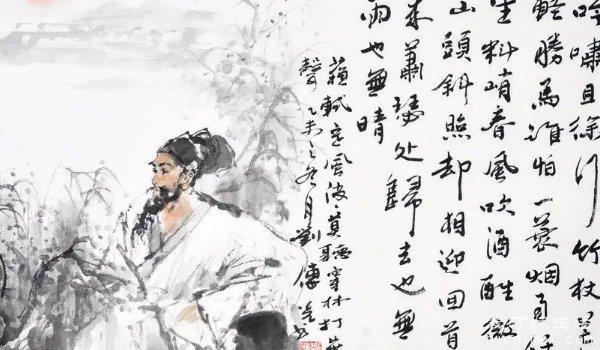 吟嘯且徐行竹杖芒
輕勝馬誰怕一蓑烟雨任
生料峭春風吹酒醒微
山頭斜照却相迎回首
来蕭瑟处歸去也無
雨也無晴
蘇軾定風波莫聽穿林打葉
聲乙未之九月劉傳